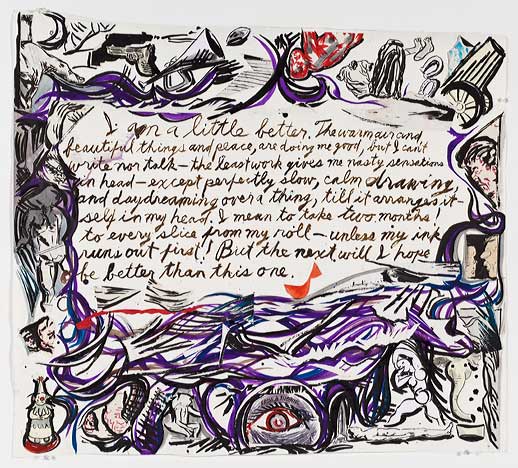 I am a little better. The warm air and
beautiful things and peace, are doing me good, but I can't
write nor talk – the least work gives me nasty sensations
in head – except perfectly slow, calm drawing,
and daydreaming over a thing, till it arranges it-
self in my head. I mean to take two months!
to every slice from my roll – unless my ink
runs out first! But the next will I hope
be better than this one.